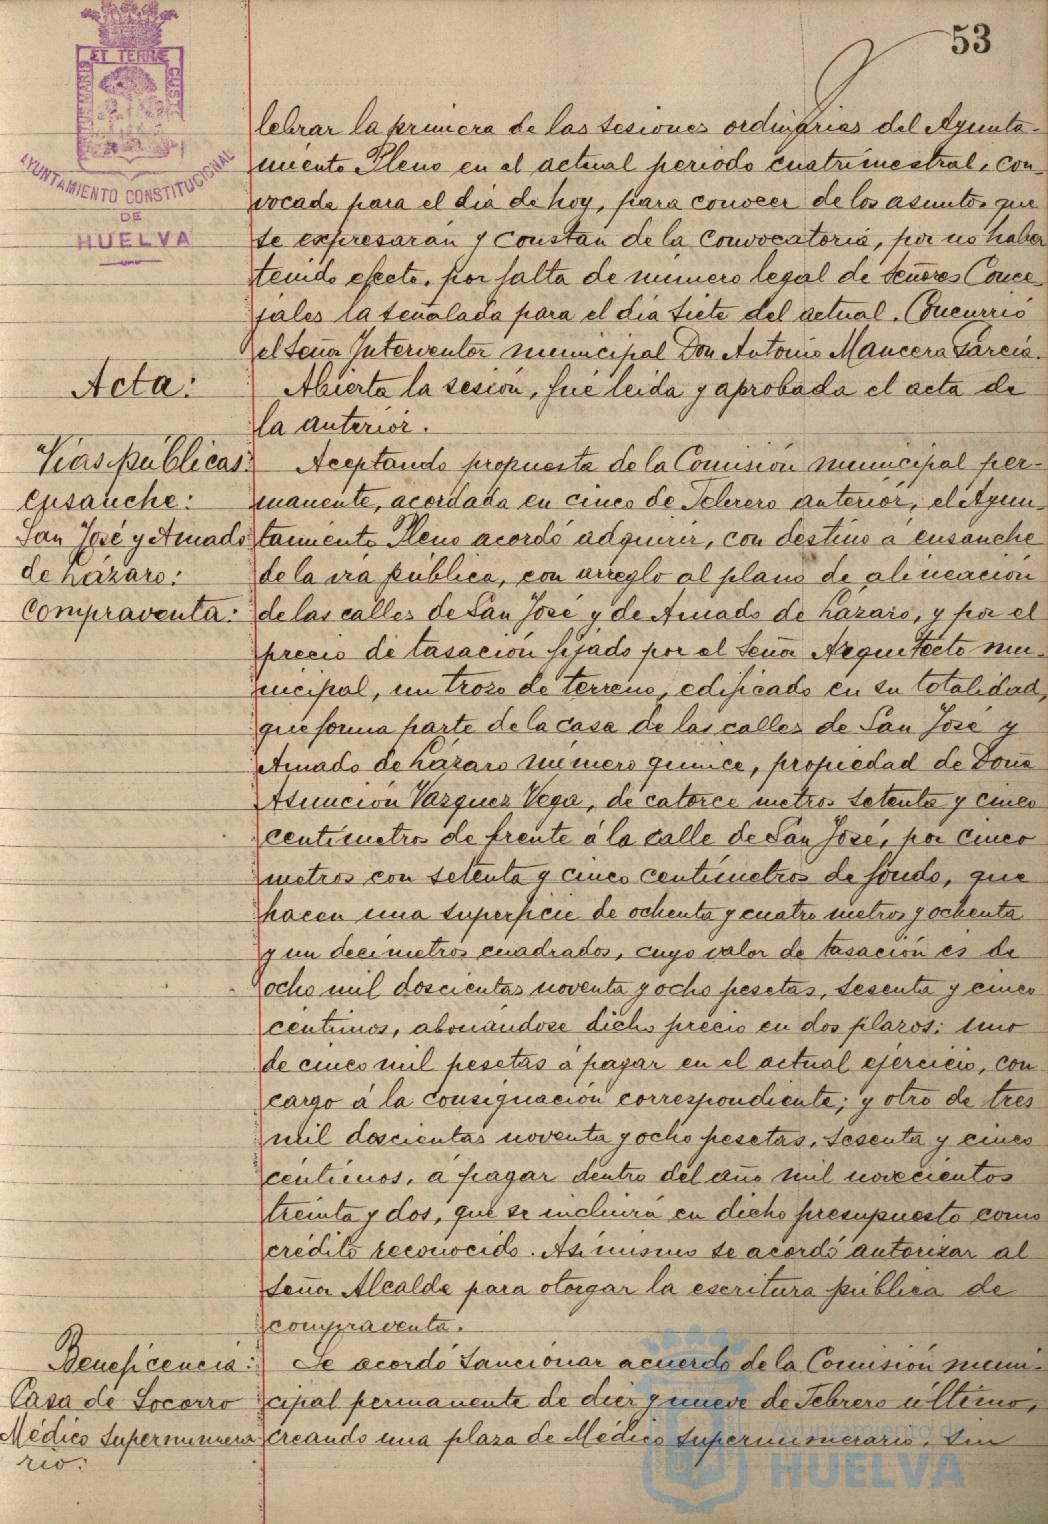 53
PORTUS MARIS ET TERRÆ CUSTODIA
AYUNTAMIENTO CONSTITUCIONAL
DE
HUELVA
lebrar la primera de las sesiones ordinarias del Ayunta-
miento Pleno en el actual periodo cuatrimestral, con-
vocada para el dia de hoy, para conocer de los asuntos que
se expresarán y constan de la convocatoria, por no haber
tenido efecto, por falta de número legal de señores Conce-
jales la señalada para el día siete del actual. Concurrió
el señor Interventor municipal Don Antonio Mancera García.
Acta:
Abierta la sesión, fué leida y aprobada el acta de
la anterior.
Vías públicas:
ensanche:
San José y Amado
de Lázaro:
Compraventa:
Aceptando propuesta de la Comisión municipal per-
manente, acordada en cinco de Febrero anterior, el Ayun-
tamiento Pleno acordó adquirir, con destino á ensanche
de la vía pública, con arreglo al plano de alineación
de las calles de San José y de Amado de Lázaro, y por el
precio de tasación fijado por el señor Arquitecto mu-
nicipal, un trozo de terreno, edificado en su totalidad,
que forma parte de la casa de las calles de San José y
Amado de Lázaro número quince, propiedad de Doña
Asunción Vázquez Vega, de catorce metros setenta y cinco
centímetros de frente á la calle de San José, por cinco
metros con setenta y cinco centímetros de fondo, que
hacen una superficie de ochenta y cuatro metros y ochenta
y un decímetros cuadrados, cuyo valor de tasación es de
ocho mil doscientas noventa y ocho pesetas, sesenta y cinco
céntimos, abonándose dicho precio en dos plazos: uno
de cinco mil pesetas á pagar en el actual ejercicio, con
cargo á la consignación correspondiente; y otro de tres
mil doscientas noventa y ocho pesetas, sesenta y cinco
céntimos, á pagar dentro del año mil novecientos
treinta y dos, que se incluirá en dicho presupuesto como
crédito reconocido. Asimismo se acordó autorizar al
señor Alcalde para otorgar la escritura pública de
compraventa.
Beneficencia:
Casa de Socorro
Médico supernumera
rio:
Se acordó sancionar acuerdo de la Comisión muni-
cipal permanente de diez y nueve de Febrero último,
creando una plaza de Médico supernumerario, sin
Ayuntamiento de
HUELVA